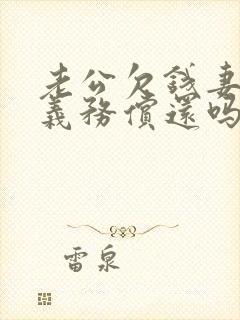 老公欠錢妻
義務償還嗎
雷泉